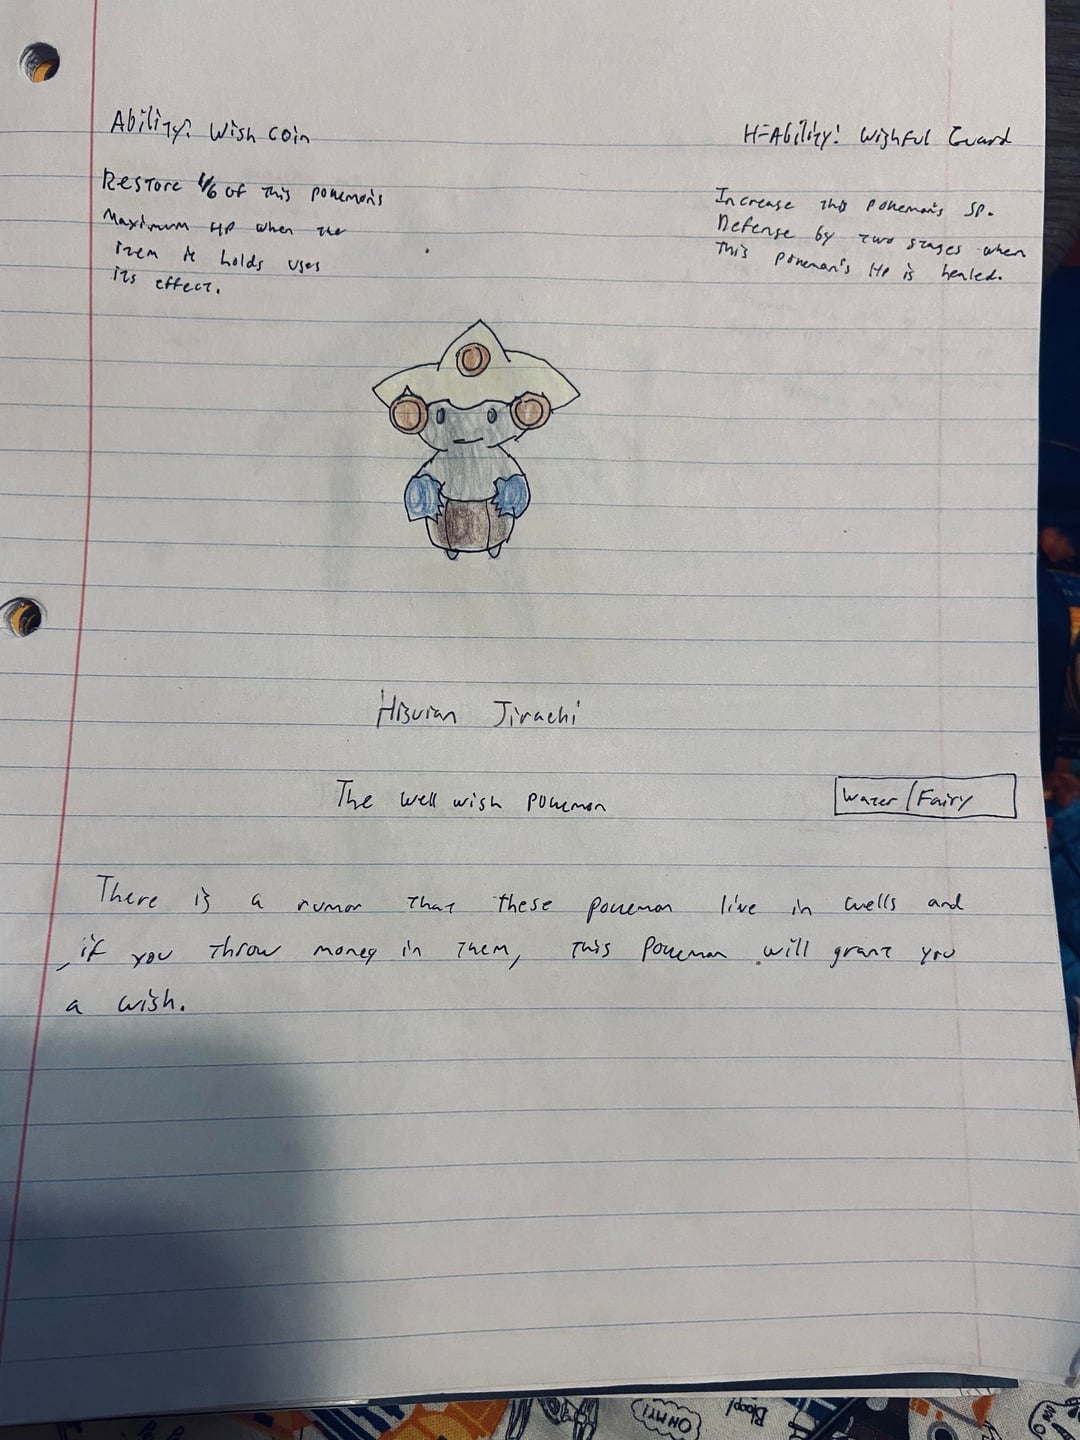 Ability: Wish Coin
Restore 1/6 of this pokemon's
Maximum HP when the
item it holds uses
its effect.
H-Ability: Wishful Guard
Increase this pokemon's SP.
Defense by two stages when
this pokemon's HP is healed.
Hisuian Jirachi
The well wish pokemon
Water/Fairy
There is a rumor that these pokemon live in wells and
if you throw money in them, this pokemon will grant you
a wish.
OH MY!
Bloop!